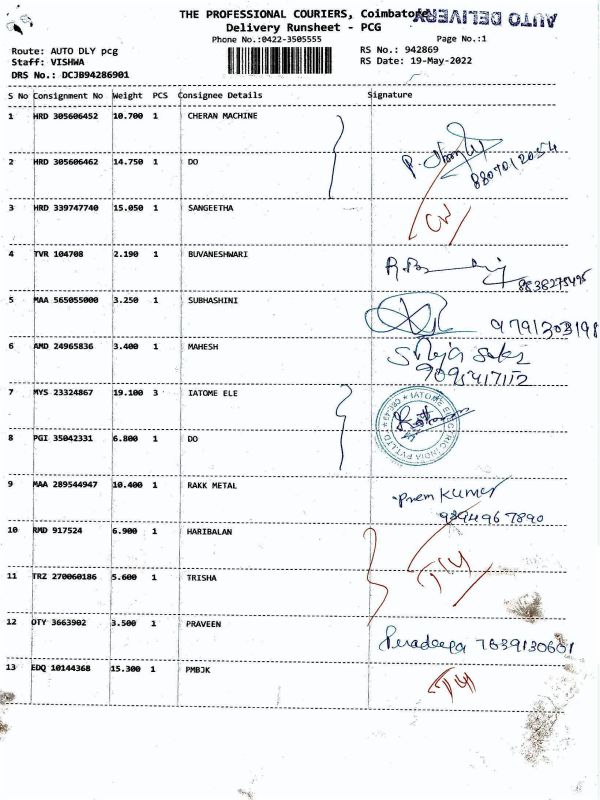 THE PROFESSIONAL COURIERS, Coimbatore
AUTO DELIVERY
Delivery Runsheet - PCG
Phone No.:0422-3505555
Page No.:1
Route: AUTO DLY pcg
RS No.: 942869
Staff: VISHWA
RS Date: 19-May-2022
DRS No.: DCJB94286901
S No Consignment No Weight PCS Consignee Details Signature
1 HRD 305606452 10.700 1 CHERAN MACHINE
2 HRD 305606462 14.750 1 DO
8807012054
3 HRD 339747740 15.050 1 SANGEETHA
4 TVR 104708 2.190 1 BUVANESHWARI
8838275495
5 MAA 565055000 3.250 1 SUBHASHINI
9791303198
6 AMD 24965836 3.400 1 MAHESH
7 MYS 23324867 19.100 3 IATOME ELE
IATOME ELECTRIC INDIA PVT.LTD
8 PGI 35042331 6.800 1 DO
9 MAA 289544947 10.400 1 RAKK METAL
Prem Kumar
9894967890
10 RMD 917524 6.900 1 HARIBALAN
11 TRZ 270060186 5.600 1 TRISHA
12 OTY 3663902 3.500 1 PRAVEEN
Peradeepa 7639130601
13 EDQ 10144368 15.300 1 PMBJK